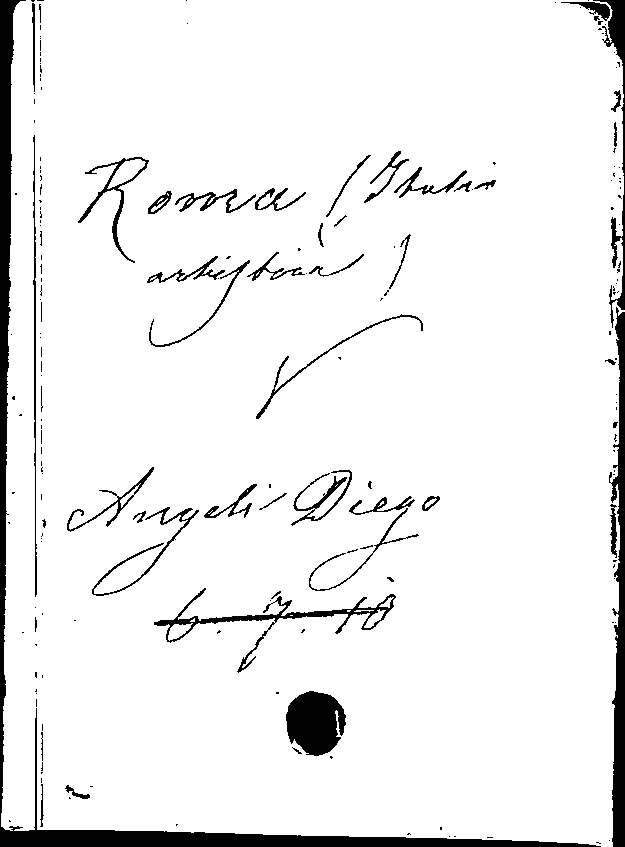 Roma (Italia
artistica)
V
Angeli Diego
6.7.10